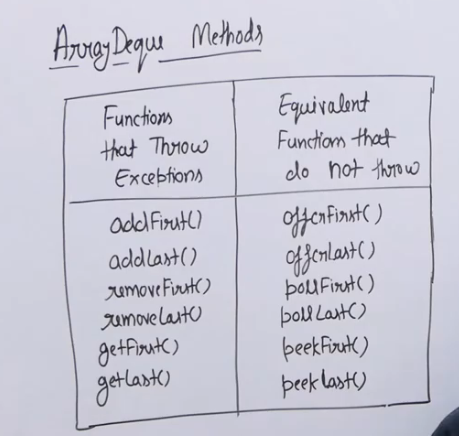 ArrayDeque Methods
Functions that Throw Exceptions
Equivalent Functions that do not throw
addFirst() offerFirst()
addLast() offerLast()
removeFirst() pollFirst()
removeLast() pollLast()
getFirst() peekFirst()
getLast() peekLast()